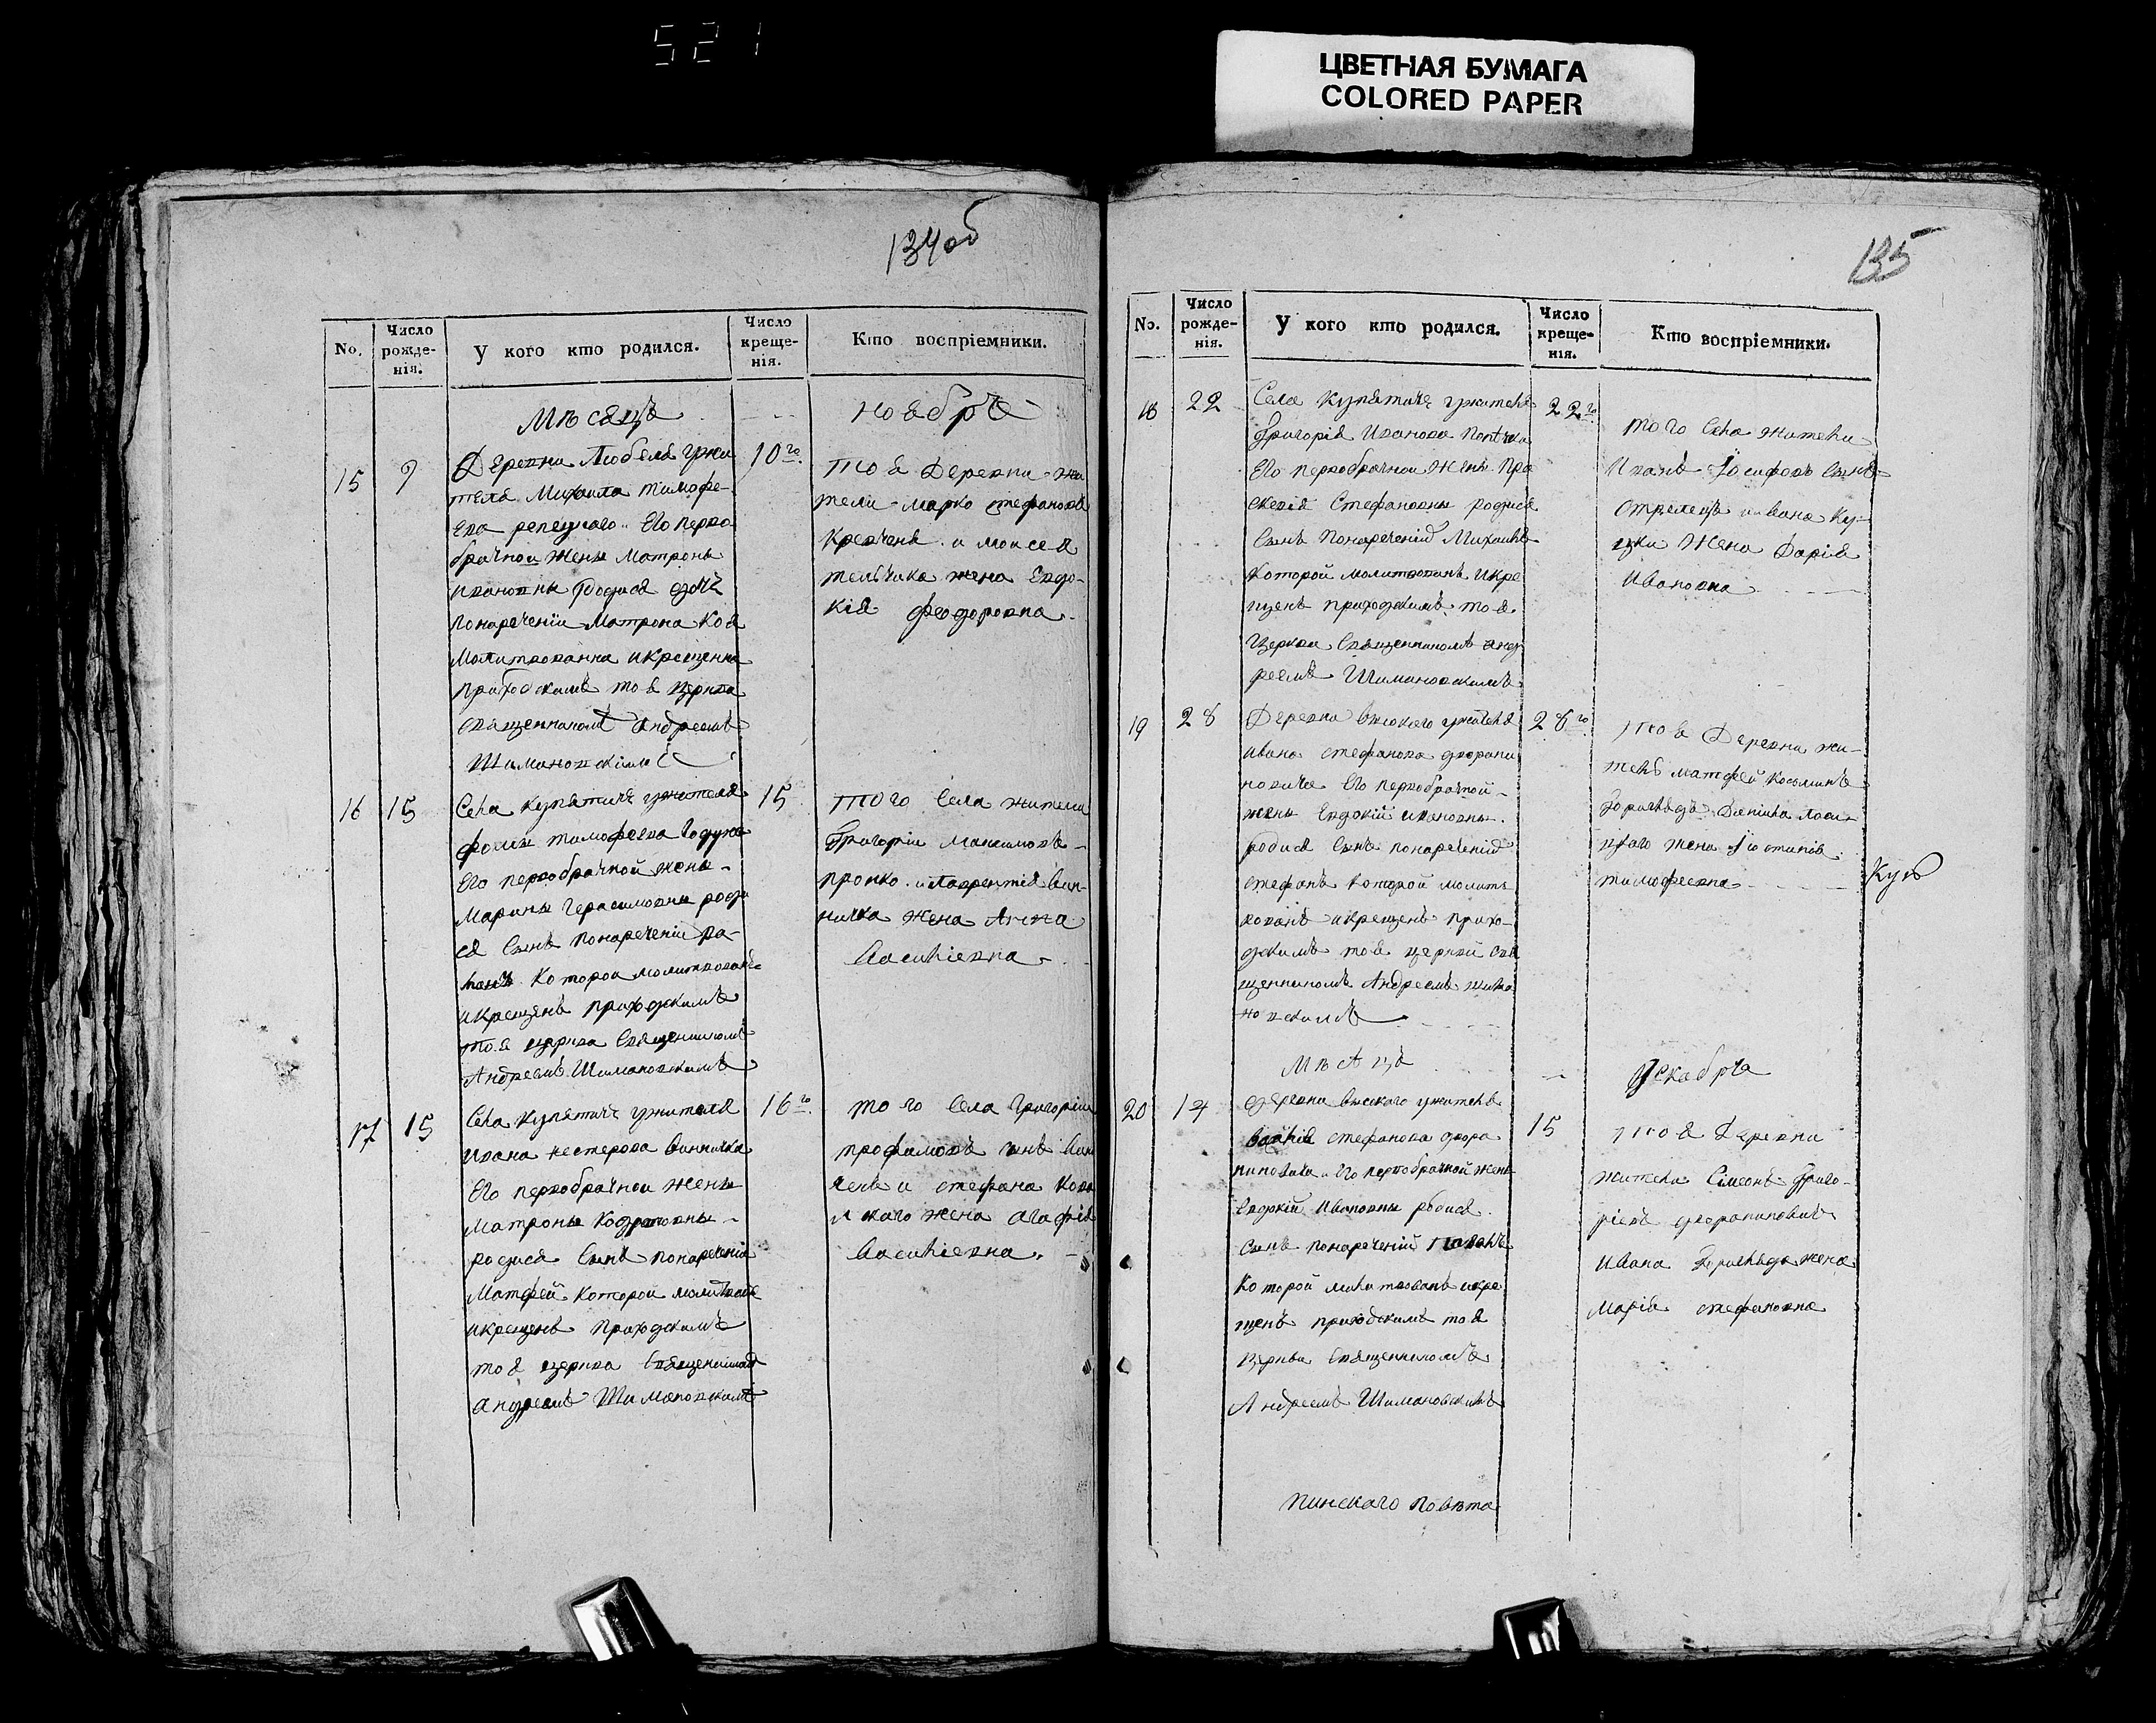 521
ЦВЕТНАЯ БУМАГА
COLORED PAPER
134об
No.
Число рожденія.
У кого кто родился.
Число крещенія.
Кто воспріемники.
Мѣсяцъ
Ноябрь
15
9
Деревни Любеля ужи
теля Михаила Тимофе-
ева Его перво
брачной жены Матроны
Ивановны Родися дочь
понареченіи Матрона Коя
Молитвованна икрещенна
приходскимъ тоя церкви
священникомъ Андреемъ
Шимановскимъ
10го
Тоя Деревни жи
тели Марко Стефановъ
и Моисея
жена Евдо-
кія Феодоровна
16
15
Села Купятичъ ужителя
Фомы Тимофеева
Его первобрачной жены
Марины Герасимовны роди
ся Сынъ понареченіи
Которой молитвованъ
икрещенъ приходскимъ
тоя церкви Священникомъ
Андреемъ Шимановскимъ
15
Того Села жители
Григорій Максимовъ
Пронко и Лаврентія Вин-
ничка жена Анна
Васильевна
17
15
Села Купятичъ ужителя
Ивана Нестерова Винничка
Его первобрачной жены
Матроны Кодратовны
родися Сынъ понареченіи
Матфей Которой молитвованъ
икрещенъ Приходскимъ
тоя церкви Священникомъ
Андреемъ Шимановскимъ
16го
Того Села Григорій
Трофимовъ сынъ
и Стефана
жена Агафія
Васильевна
135
No.
Число рожденія.
У кого кто родился.
Число крещенія.
Кто воспріемники.
18
22
Села Купятичъ ужителя
Григорія Иванова
Его первобрачной жены Пра
скевія Стефановны родися
Сынъ Понареченій Михаилъ
Которой молитвованъ икре
щенъ приходскимъ тоя
Церкви Священникомъ Анд
реемъ Шимановскимъ
22го
Того Села Жители
Иванъ Іосифовъ Сынъ
Стрелецъ и Ивана Ку-
цки Жена Дарія
Ивановна
19
28
Деревни Высокого ужителя
Ивана Стефанова дворани
новича Его первобрачной
жены Евдокій Ивановны
родися Сынъ понареченій
Стефанъ Которой молит
вованъ икрещенъ прихо-
дскимъ тоя церкви Свя
щенникомъ Андреемъ Шима
новскимъ
28го
Тоя Деревни жи-
тель Матфей Косьминъ
Даніила
жена Іюстинія
Тимофеевна
Мѣсяцъ
Декабрь
20
14
Деревни Высокого ужителя
Василія Стефанова двора
ниновича Его первобрачной жены
Евдокій Ивановны родися
Сынъ понареченій
Которой молитвованъ икре
щенъ приходскимъ тоя
Церкви Священникомъ
Андреемъ Шимановскимъ
15
Тоя Деревни
Жители Сімеонъ Григо-
ріевъ двораниновичъ
Ивана жена
Марія Стефановна
Пинскаго Повѣта